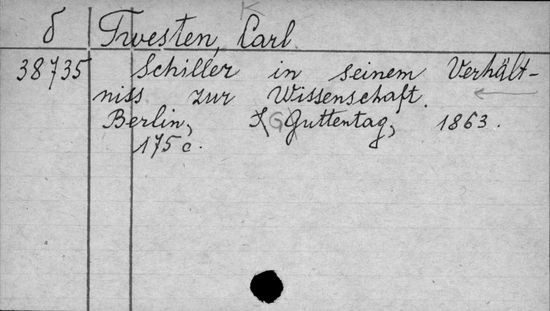 K
б Twesten, Carl.
38735 Schiller in seinem Verhält-
niss zur Wissenschaft.
Berlin, J (G) Guttentag, 1863.
175 c.